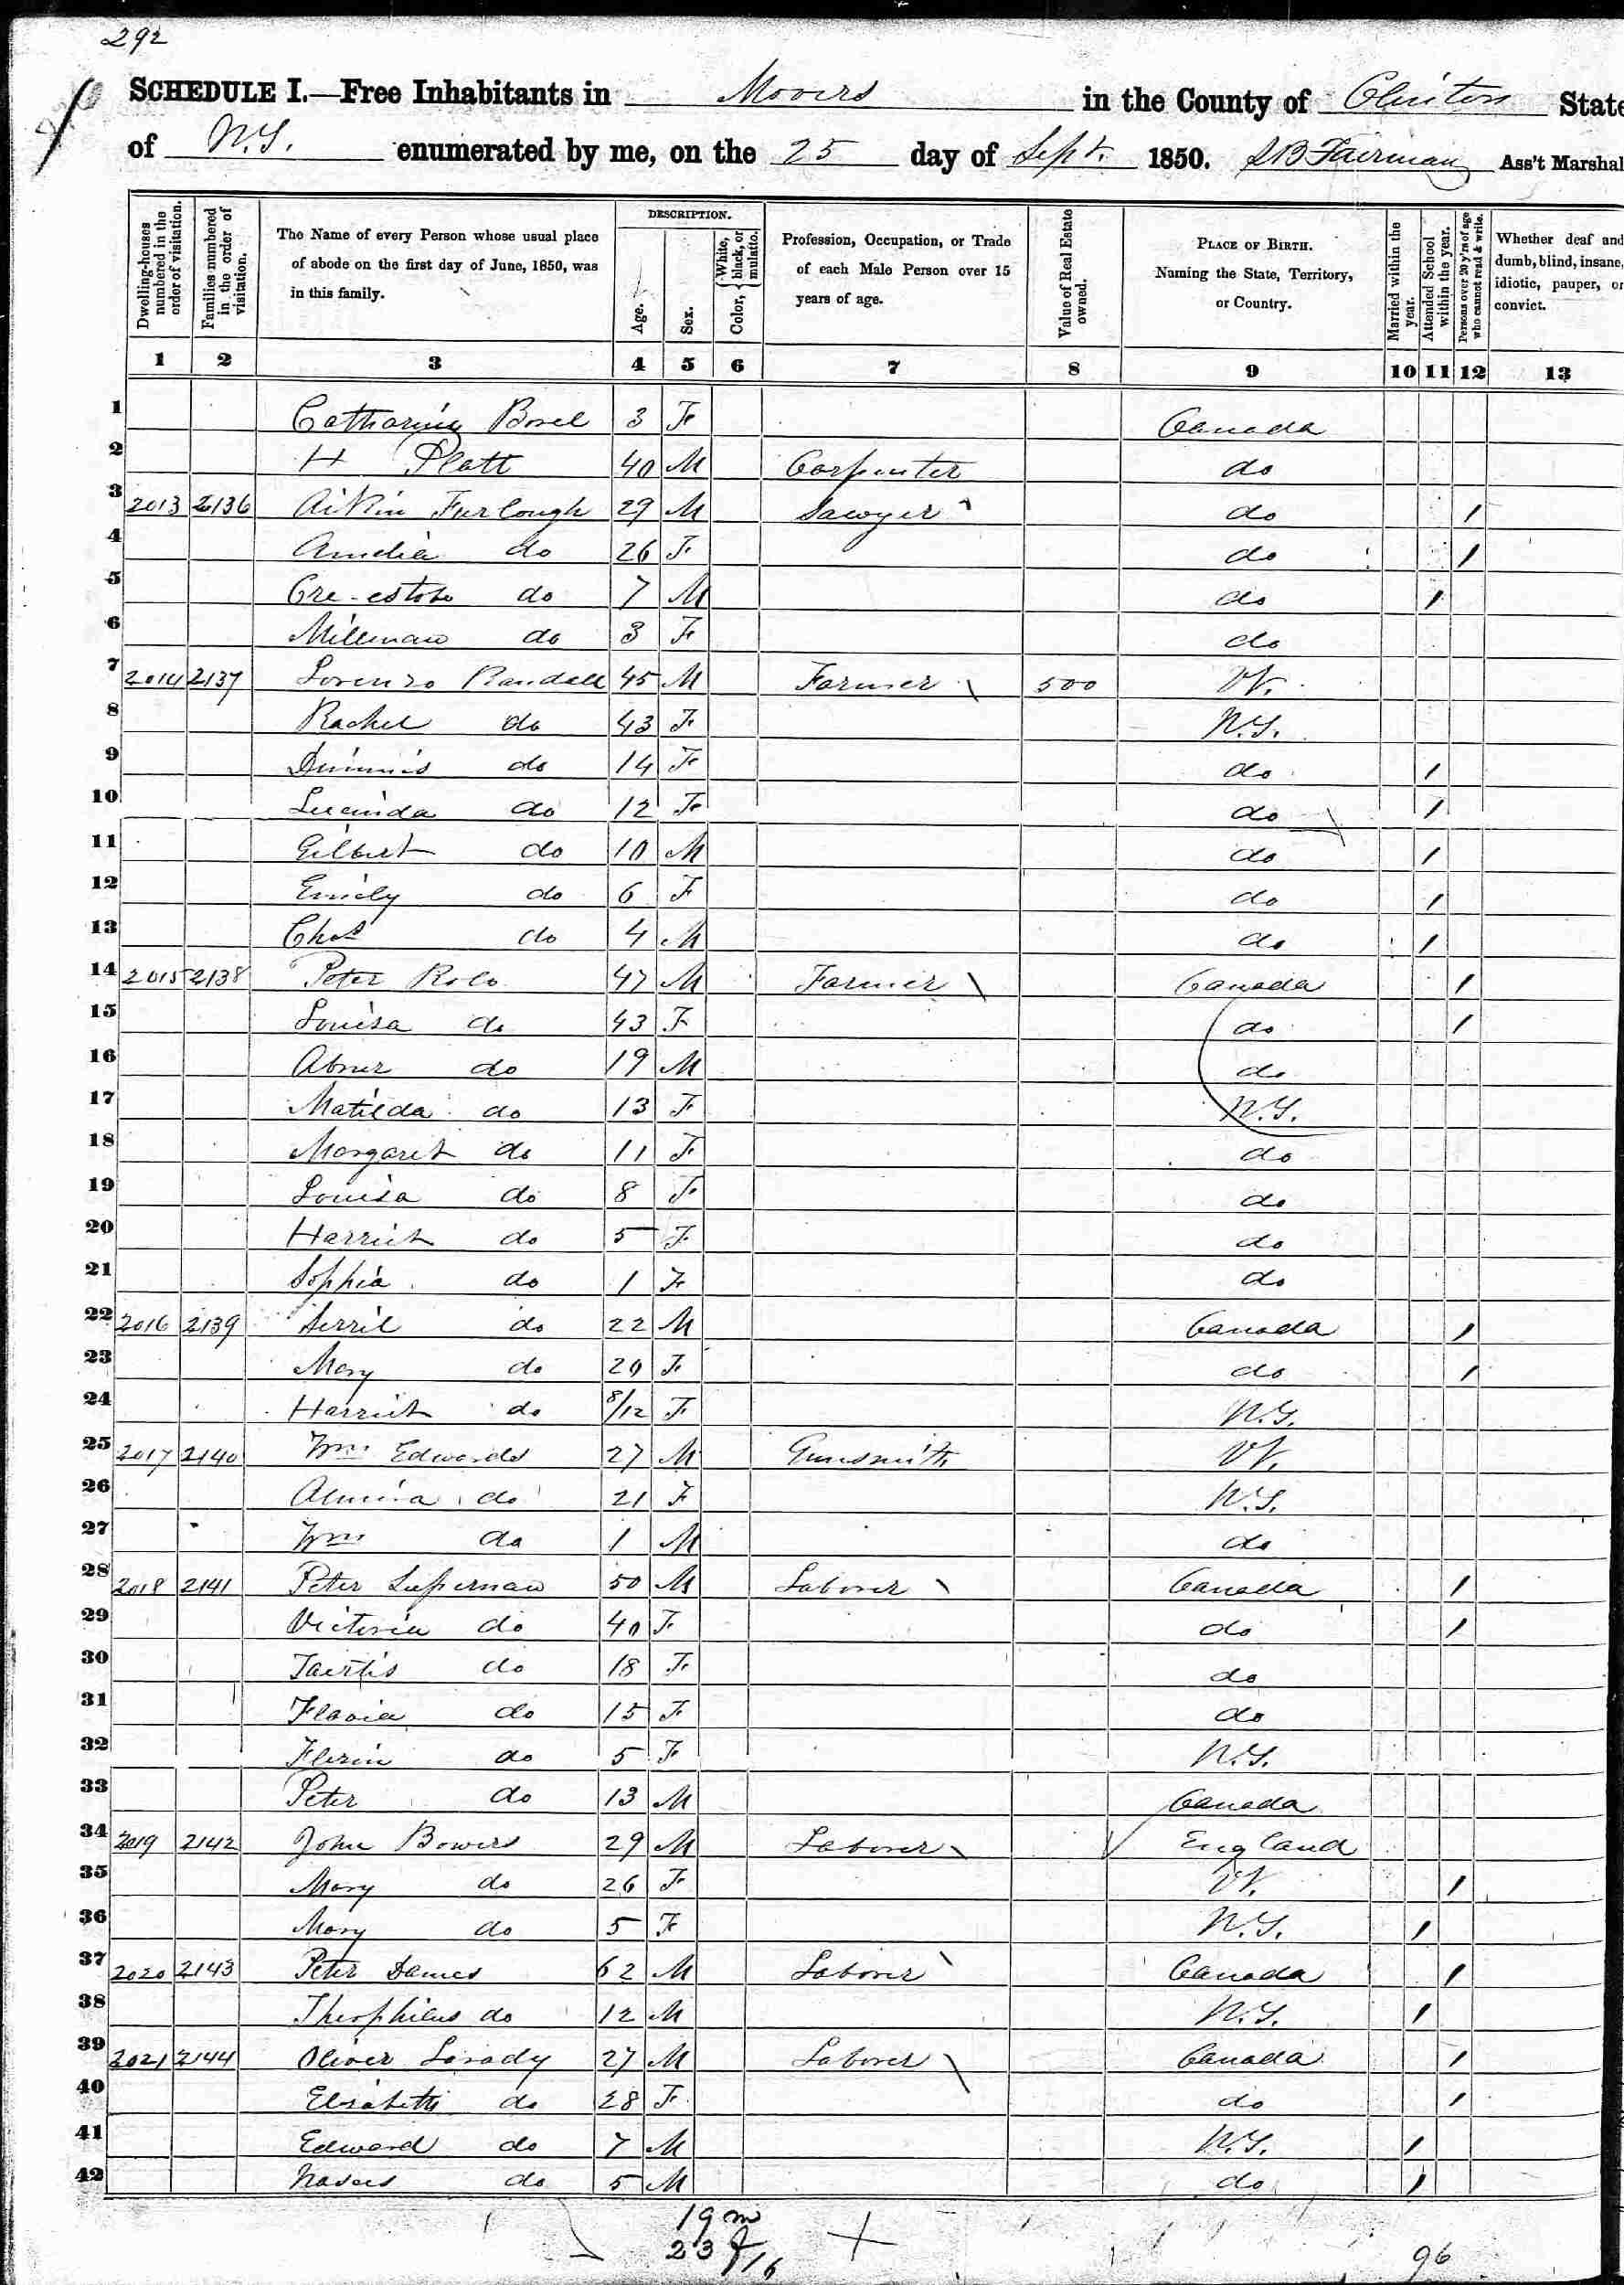 292
SCHEDULE I.—Free Inhabitants in Mooers in the County of Clinton State
of N.Y. enumerated by me, on the 25 day of Sept. 1850. S B Fairman Ass't Marshal
Dwelling-houses numbered in the order of visitation.
Families numbered in the order of visitation.
The Name of every Person whose usual place of abode on the first day of June, 1850, was in this family.
DESCRIPTION.
Age.
Sex.
Color, { White, black, or mulatto.
Profession, Occupation, or Trade of each Male Person over 15 years of age.
Value of Real Estate owned.
PLACE OF BIRTH. Naming the State, Territory, or Country.
Married within the year.
Attended School within the year.
Persons over 20 y'rs of age who cannot read & write.
Whether deaf and dumb, blind, insane, idiotic, pauper, or convict.
1 2 3 4 5 6 7 8 9 10 11 12 13
1 Catharine 3 F Canada
2 H Platt 40 M Carpenter do
3 2013 2136 Aikin Furlough 29 M Sawyer do /
4 Amelia do 26 F do /
5 do 7 M do /
6 Millinaw do 3 F do
7 2014 2137 Lorenzo Randall 45 M Farmer 500 Vt.
8 Rachel do 43 F N.Y.
9 do 14 F do /
10 Lucinda do 12 F do /
11 Gilbert do 10 M do /
12 Emily do 6 F do /
13 Chas do 4 M do /
14 2015 2138 Peter Rolo 47 M Farmer Canada /
15 Louisa do 43 F do /
16 Abner do 19 M do
17 Matilda do 13 F N.Y.
18 Margaret do 11 F do
19 Louisa do 8 F do
20 Harriet do 5 F do
21 Sophia do 1 F do
22 2016 2139 Serril do 22 M Canada /
23 Mary do 20 F do /
24 Harriet do 8/12 F N.Y.
25 2017 2140 Wm Edwards 27 M Gunsmith Vt.
26 Almira do 21 F N.Y.
27 Wm do 1 M do
28 2018 2141 Peter Lupernaw 50 M Laborer Canada /
29 Victoria do 40 F do /
30 do 18 F do
31 Flavia do 15 F do
32 do 5 F N.Y.
33 Peter do 13 M Canada
34 2019 2142 John Bowers 29 M Laborer England
35 Mary do 26 F Vt. /
36 Mary do 5 F N.Y. /
37 2020 2143 Peter 62 M Laborer Canada /
38 Theophilus do 12 M N.Y. /
39 2021 2144 Oliver 27 M Laborer Canada /
40 Elisabeth do 28 F do /
41 Edward do 7 M N.Y. /
42 do 5 M do /
19 m
23 f 16
96